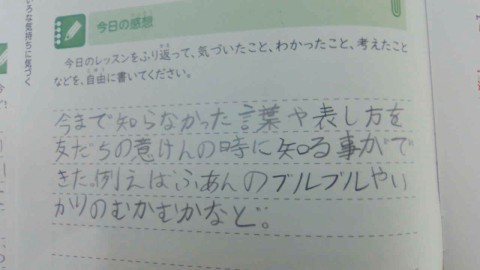 いろな気持ちに気づく
今日の感想
今日のレッスンをふり返って、気づいたこと、わかったこと、考えたこと
などを、自由に書いてください。
今まで知らなかった言葉や表し方を
友だちの意けんの時に知る事がで
きた。例えばふあんのブルブルやい
かりのむかむかなど。